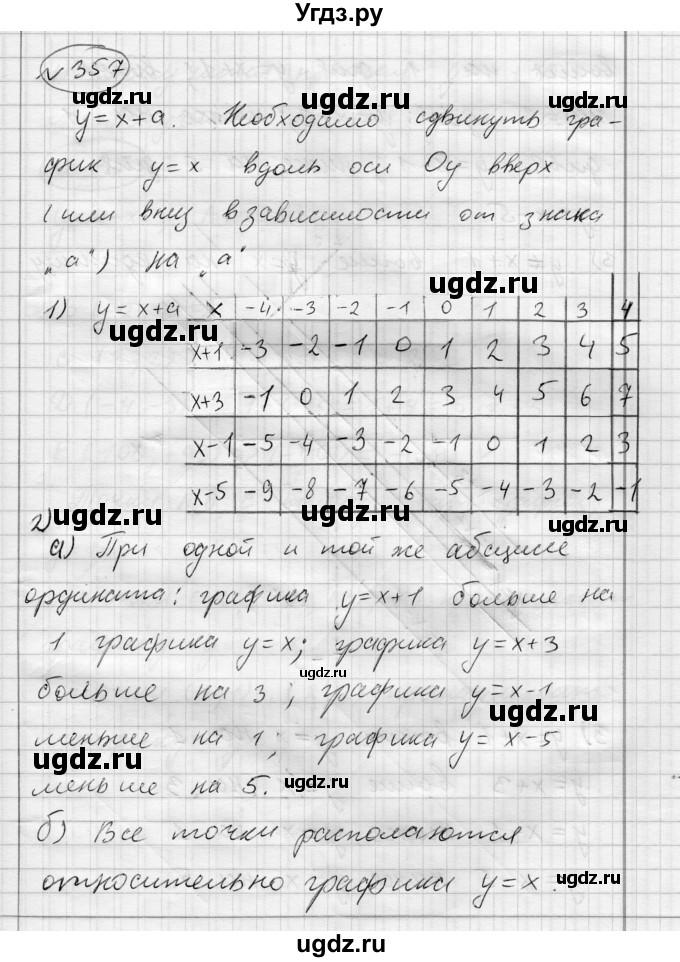 Угдз.ру
№357
ugdz.ru ugdz.ru
y=x+a. Необходимо сдвинуть гра-
фик y=x вдоль оси Oy вверх
(или вниз в зависимости от знака
„a") на „a"
ugdz.ru
1) y=x+a x -4 -3 -2 -1 0 1 2 3 4
ugdz.ru
x+1 -3 -2 -1 0 1 2 3 4 5
x+3 -1 0 1 2 3 4 5 6 7
x-1 -5 -4 -3 -2 -1 0 1 2 3
x-5 -9 -8 -7 -6 -5 -4 -3 -2 -1
2) ugdz.ru ugdz.ru
а) При одной и той же абсциссе
ордината: графика y=x+1 больше на
1 графика y=x; графика y=x+3
ugdz.ru
больше на 3; графика y=x-1
ugdz.ru
меньше на 1; графика y=x-5
ugdz.ru
меньше на 5.
ugdz.ru
б) Все точки располаются
относительно графика y=x.
ugdz.ru
ugdz.ru
ugdz.ru